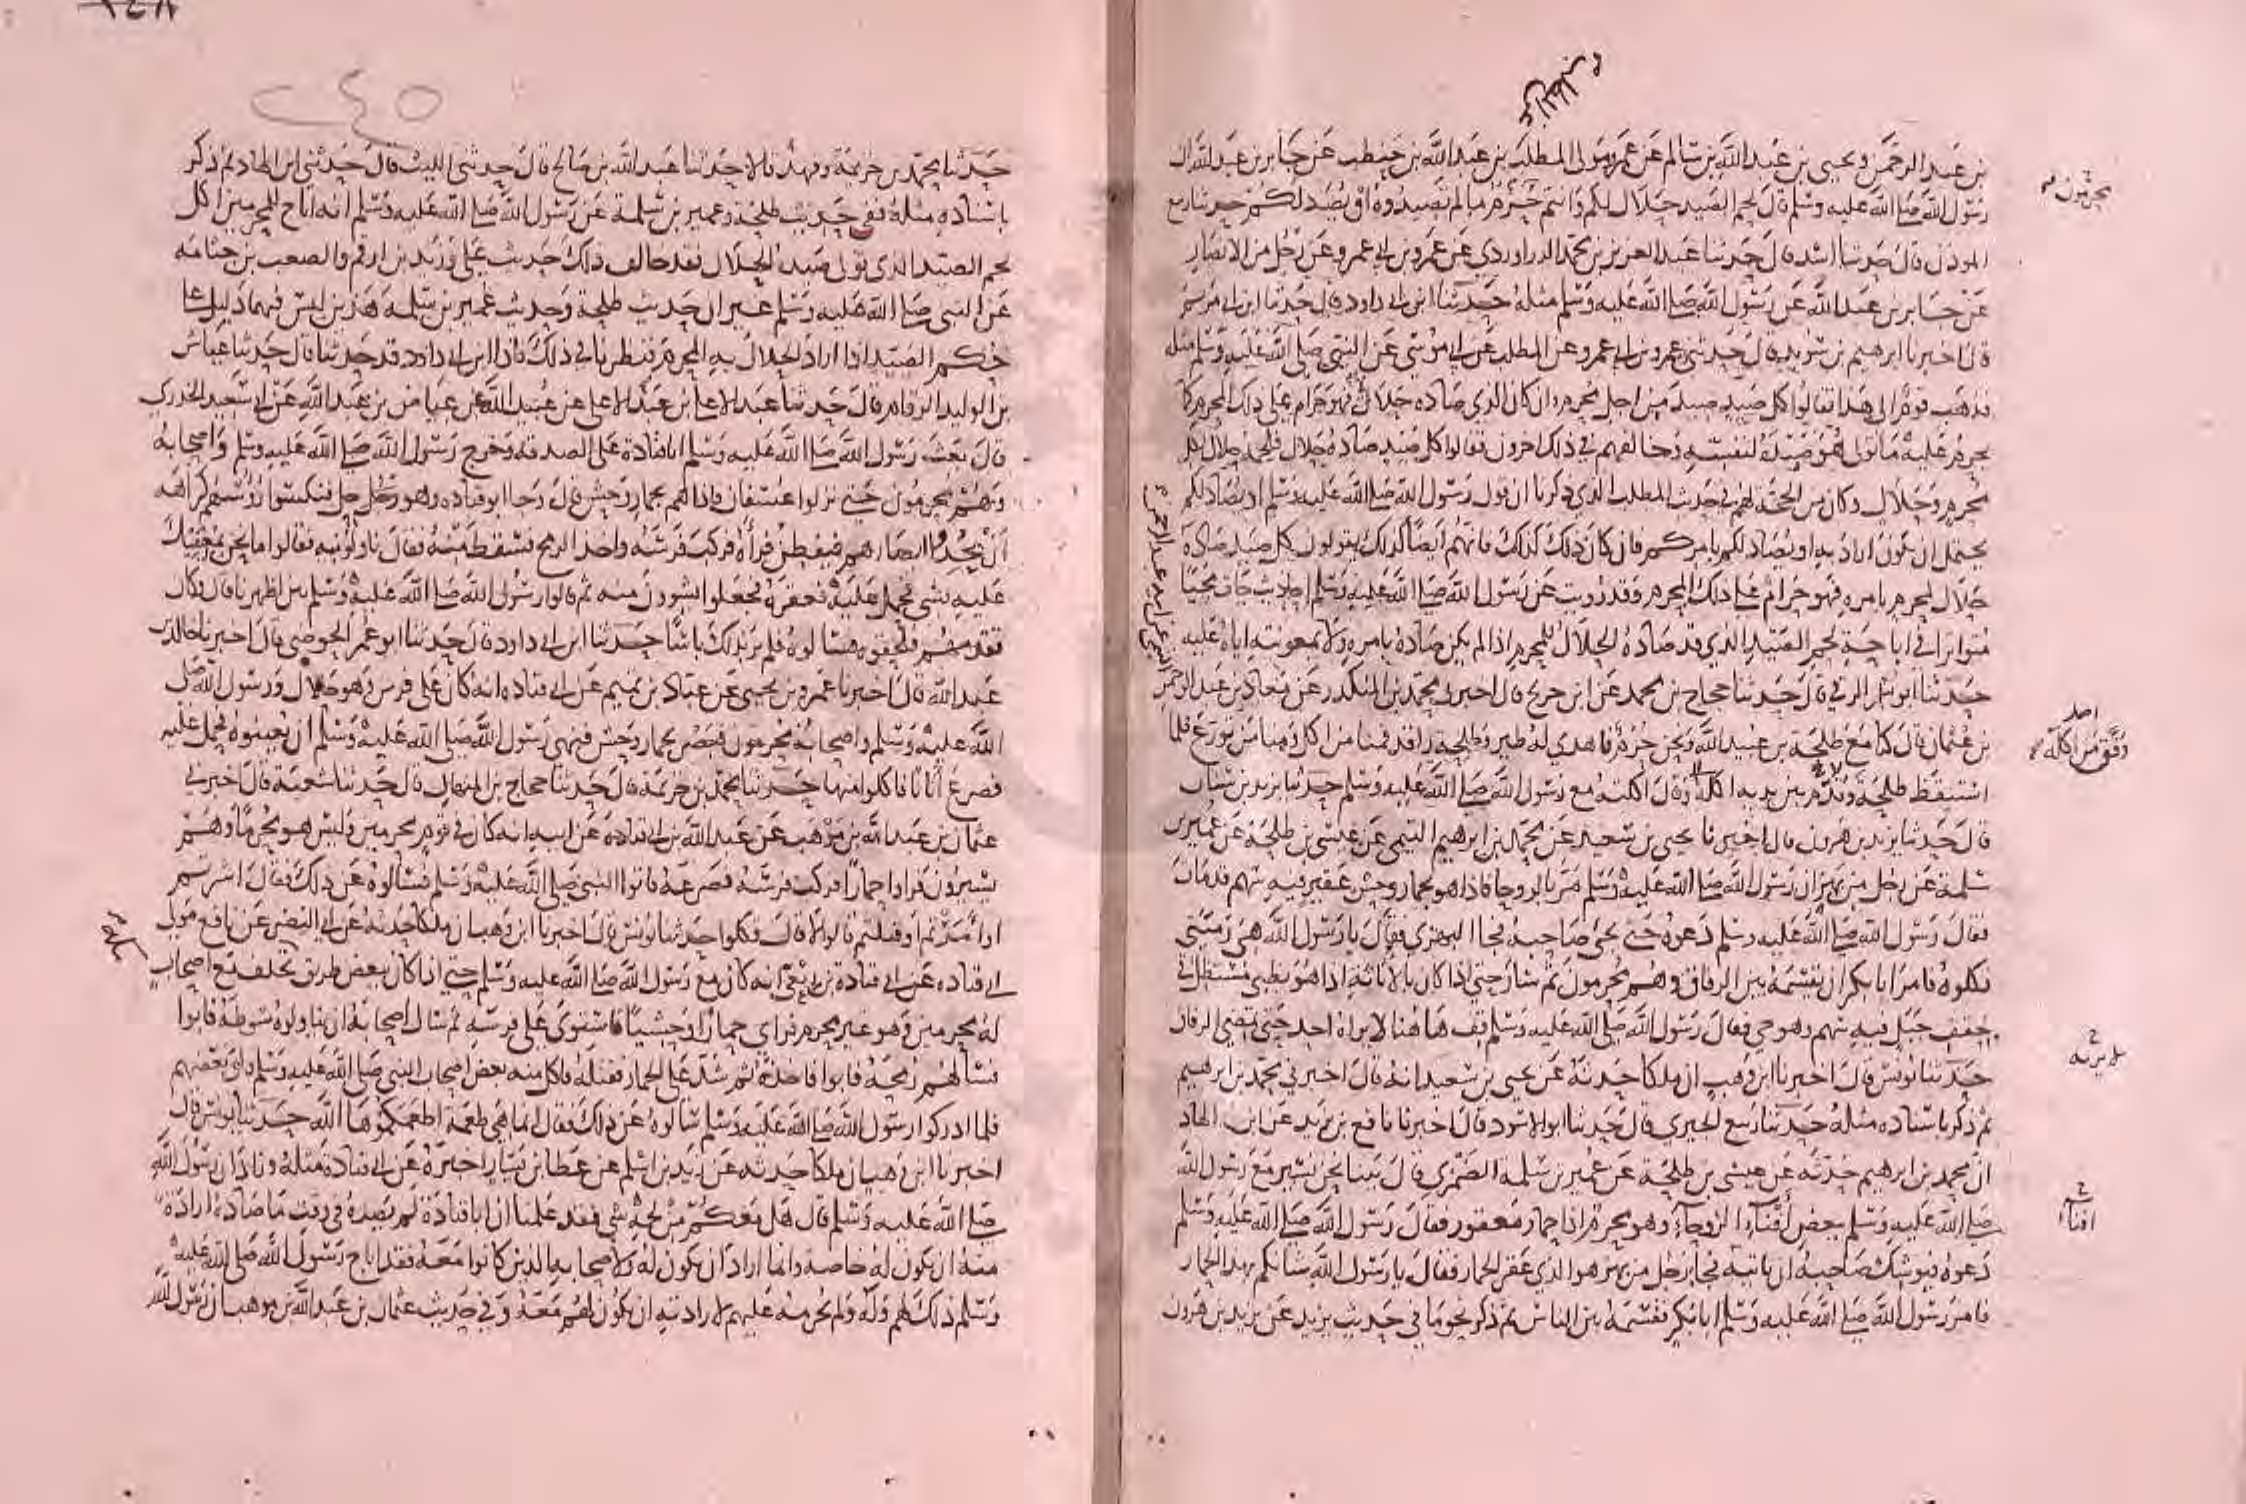 بن عبد الرحمن ويحيى بن عبد الله بن سالم عن عمرو مولى المطلب بن عبد الله بن حنطب عن جابر بن عبد الله ان
رسول الله صلى الله عليه وسلم قال لحم الصيد حلال لكم وانتم حرم ما لم تصيدوه او يصد لكم حدثنا ربيع
المؤذن قال حدثنا اسد قال حدثنا عبد العزيز بن محمد الدراوردي عن عمرو بن ابي عمرو عن رجل من الانصار
عن جابر بن عبد الله عن رسول الله صلى الله عليه وسلم مثله حدثنا ابن ابي داود قال حدثنا ابن ابي مريم
قال اخبرنا ابرهيم بن سويد قال حدثني عمرو بن ابي عمرو عن المطلب عن ابي موسى عن النبي صلى الله عليه وسلم مثله
فذهب قوم الى هذا فقالوا كل صيد صيد من اجل محرم وان كان الذي صاده حلال فهو حرام على ذلك المحرم كما
يحرم عليه ما تولى هو صيده لنفسه وخالفهم في ذلك اخرون فقالوا كل صيد صاده حلال فلحمه حلال لكل
محرم وحلال وكان من الحجة لهم في حديث المطلب الذي ذكرنا ان قول رسول الله صلى الله عليه وسلم او يصاد لكم
يحتمل ان يكون اراد به او يصاد لكم بامركم فان كان ذلك كذلك فانهم ايضا كذلك يقولون كل صيد صاده
حلال لمحرم بامره فهو حرام على ذلك المحرم وقد رويت عن رسول الله صلى الله عليه وسلم احاديث جاءت مجيئا
متواترا في اباحة لحم الصيد الذي قد صاده الحلال للمحرم اذا لم يكن صاده بامره ولا بمعونته اياه عليه
حدثنا ابو بشر الرقي قال حدثنا حجاج بن محمد عن ابن جريج قال اخبرني محمد بن المنكدر عن معاذ بن عبد الرحمن
بن عثمان قال كنا مع طلحة بن عبيد الله ونحن حرم فاهدي له طير وطلحة راقد فمنا من اكل ومنا من تورع فلما
استيقظ طلحة وقدم بين يديه اكله وقال اكلته مع رسول الله صلى الله عليه وسلم حدثنا يزيد بن سنان
قال حدثنا يزيد بن هرون قال اخبرنا يحيى بن سعيد عن محمد بن ابرهيم التيمي عن عيسى بن طلحة عن عمير بن
سلمة عن رجل من بهز ان رسول الله صلى الله عليه وسلم مر بالروحا فاذا هو بحمار وحش عقير فيه سهم قد مات
فقال رسول الله صلى الله عليه وسلم دعوه حتى يجئ صاحبه فجا البهزي فقال يا رسول الله هي رميتي
فكلوه فامر ابا بكر ان يقسمه بين الرفاق وهم محرمون ثم سار حتى اذا كان بالاثاية اذا هو بظبي مستظل في
حقف جبل فيه سهم وهو حي فقال رسول الله صلى الله عليه وسلم قف ها هنا لا يراه احد حتى تمضي الرفاق
حدثنا يونس قال اخبرنا ابن وهب ان ملكا حدثه عن يحيى بن سعيد انه قال اخبرني محمد بن ابرهيم
ثم ذكر باسناده مثله حدثنا ربيع الجيزي قال حدثنا ابو الاسود قال اخبرنا نافع بن يزيد عن ابن الهاد
ان محمد بن ابرهيم حدثه عن عيسى بن طلحة عن عمير بن سلمة الضمري قال بينا نحن نسير مع رسول الله
صلى الله عليه وسلم ببعض افناء الروحاء وهو محرم اذا حمار معقور فقال رسول الله صلى الله عليه وسلم
دعوه فيوشك صاحبه ان ياتيه فجا رجل من بهز هو الذي عقر الحمار فقال يا رسول الله شانكم بهذا الحمار
فامر رسول الله صلى الله عليه وسلم ابا بكر فقسمه بين الناس ثم ذكر نحو ما في حديث يزيد عن يزيد بن هرون
محرمون
احد
وفق من اكله
افناء
حدثنا محمد بن خزيمة وفهد قالا حدثنا عبد الله بن صالح قال حدثني الليث قال حدثني ابن الهاد ثم ذكر
باسناده مثله ففي حديث طلحة وعمير بن سلمة عن رسول الله صلى الله عليه وسلم انه اباح للمحرمين اكل
لحم الصيد الذي تولى صيده الحلال فقد خالف ذلك حديث علي وزيد بن ارقم والصعب بن جثامه
عن النبي صلى الله عليه وسلم غير ان حديث طلحة وحديث عمير بن سلمة هذين ليس فيهما دليل على
حكم الصيد اذا اراد الحلال به المحرم فنظرنا في ذلك فاذا ابن ابي داود قد حدثنا قال حدثنا عياش
بن الوليد الرقام قال حدثنا عبد الاعلى بن عبد الاعلى عن عبيد الله عن عياض بن عبد الله عن ابي سعيد الخدري
قال بعث رسول الله صلى الله عليه وسلم ابا قتادة على الصدقة وخرج رسول الله صلى الله عليه وسلم واصحابه
وهم محرمون حتى نزلوا عسفان فاذا هم بحمار وحش قال وجا ابو قتاده وهو رجل حل فنكسوا رؤسهم كراهة
ان يحدوا ابصارهم فيفطن فرآه فركب فرسه واخذ الرمح فسقط منه فقال ناولونيه فقالوا ما نحن بمعينيك
عليه بشي فحمل عليه فعقره فجعلوا يشوون منه ثم قالوا رسول الله صلى الله عليه وسلم بين اظهرنا قال وكان
تقدمهم فلحقوه فسالوه فلم ير بذلك باسا حدثنا ابن ابي داود قال حدثنا ابو عمر الحوضي قال اخبرنا خالد بن
عبد الله قال اخبرنا عمرو بن يحيى عن عباد بن تميم عن ابي قتاده انه كان على فرس وهو حلال ورسول الله صلى
الله عليه وسلم واصحابه محرمون فبصر بحمار وحش فنهى رسول الله صلى الله عليه وسلم ان يعينوه فحمل عليه
فصرع اتانا فاكلوا منها حدثنا محمد بن خزيمة قال حدثنا حجاج بن المنهال قال حدثنا شعبة قال اخبرني
عثمان بن عبد الله بن موهب عن عبد الله بن ابي قتادة عن ابيه انه كان في قوم محرمين وليس هو محرما وهم
يسيرون فراوا حمارا فركب فرسه فصرعه فاتوا النبي صلى الله عليه وسلم فسالوه عن ذلك فقال اشرتم
او اصدتم او قتلتم قالوا لا قال فكلوا حدثنا يونس قال اخبرنا ابن وهب ان ملكا حدثه عن ابي النضر عن نافع مولى
ابي قتاده عن ابي قتادة بن ربعي انه كان مع رسول الله صلى الله عليه وسلم حتى اذا كان ببعض طريق تخلف مع اصحاب
له محرمين وهو غير محرم فراى حمارا وحشيا فاستوى على فرسه ثم سال اصحابه ان يناولوه سوطه فابوا
فسالهم رمحه فابوا فاخذه ثم شد على الحمار فقتله فاكل منه بعض اصحاب النبي صلى الله عليه وسلم وابى بعضهم
فلما ادركوا رسول الله صلى الله عليه وسلم سالوه عن ذلك فقال انما هي طعمة اطعمكموها الله حدثنا يونس قال
اخبرنا ابن وهب ان ملكا حدثه عن زيد بن اسلم عن عطا بن يسار اخبره عن ابي قتادة مثله وزاد ان رسول الله
صلى الله عليه وسلم قال هل معكم من لحمه شي فقد علمنا ان ابا قتادة لم يصده في وقت ما صاده ارادة
منه ان يكون له خاصة وانما اراد ان يكون له ولاصحابه الذين كانوا معه فقد اباح رسول الله صلى الله عليه
وسلم ذلك لهم وله ولم يحرمه عليهم لارادته ان يكون لهم معه وفي حديث عثمان بن عبد الله بن موهب ان رسول الله
مكة